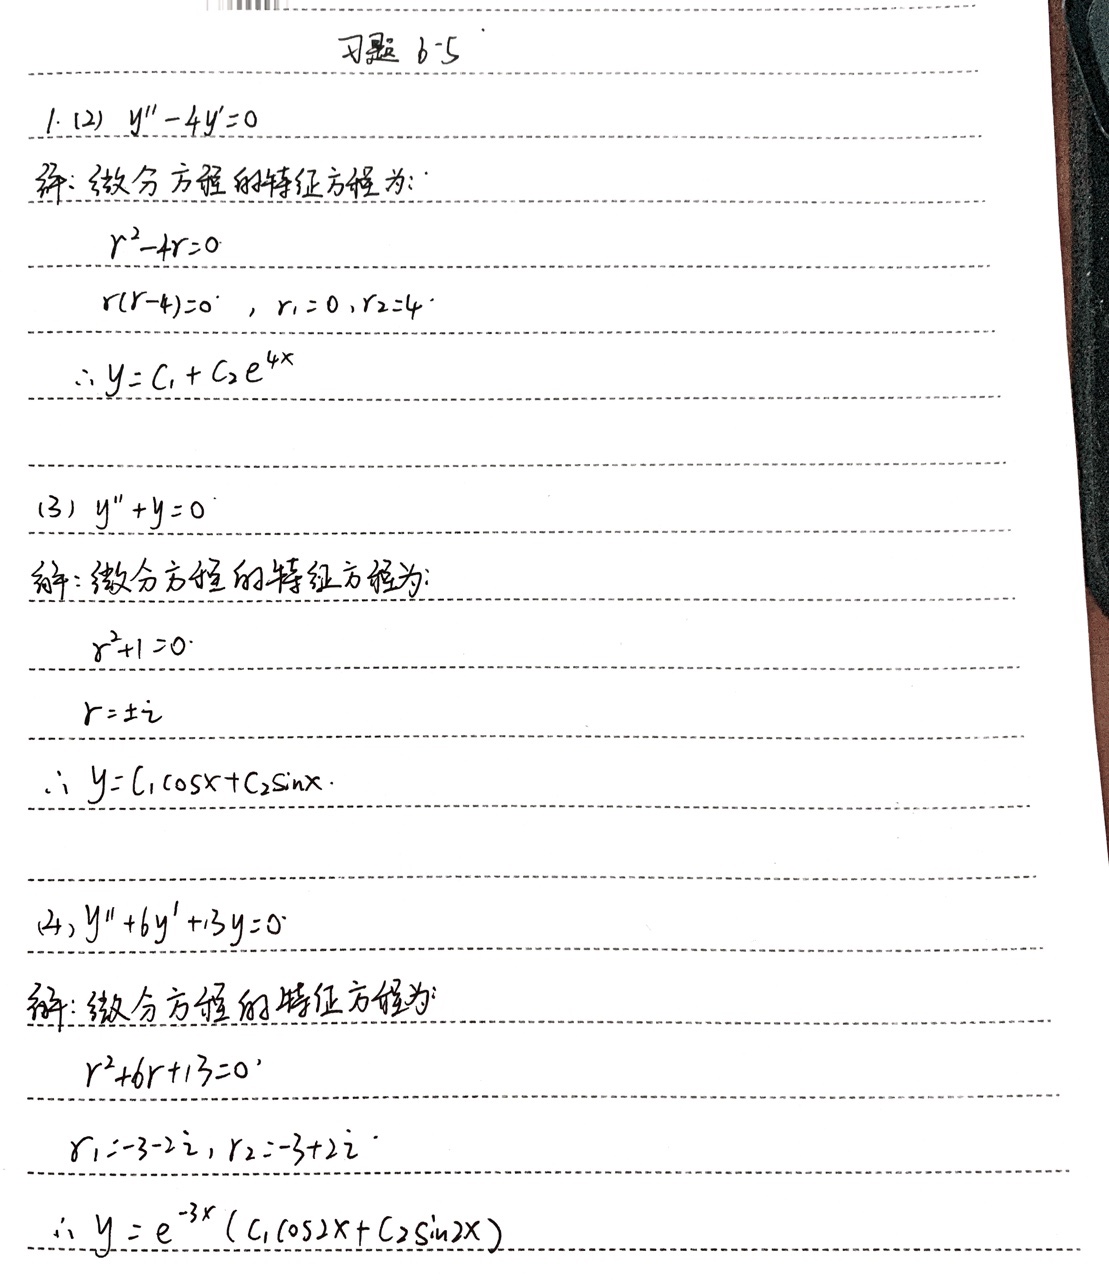 习题 6-5
1. (2) y''-4y'=0
解: 微分方程的特征方程为:
r²-4r=0
r(r-4)=0, r₁=0, r₂=4
∴ y=C₁+C₂e⁴ˣ
(3) y''+y=0
解: 微分方程的特征方程为:
r²+1=0
r=±i
∴ y=C₁cosx+C₂sinx.
(4) y''+6y'+13y=0
解: 微分方程的特征方程为:
r²+6r+13=0
r₁=-3-2i, r₂=-3+2i
∴ y=e⁻³ˣ(C₁cos2x+C₂sin2x)